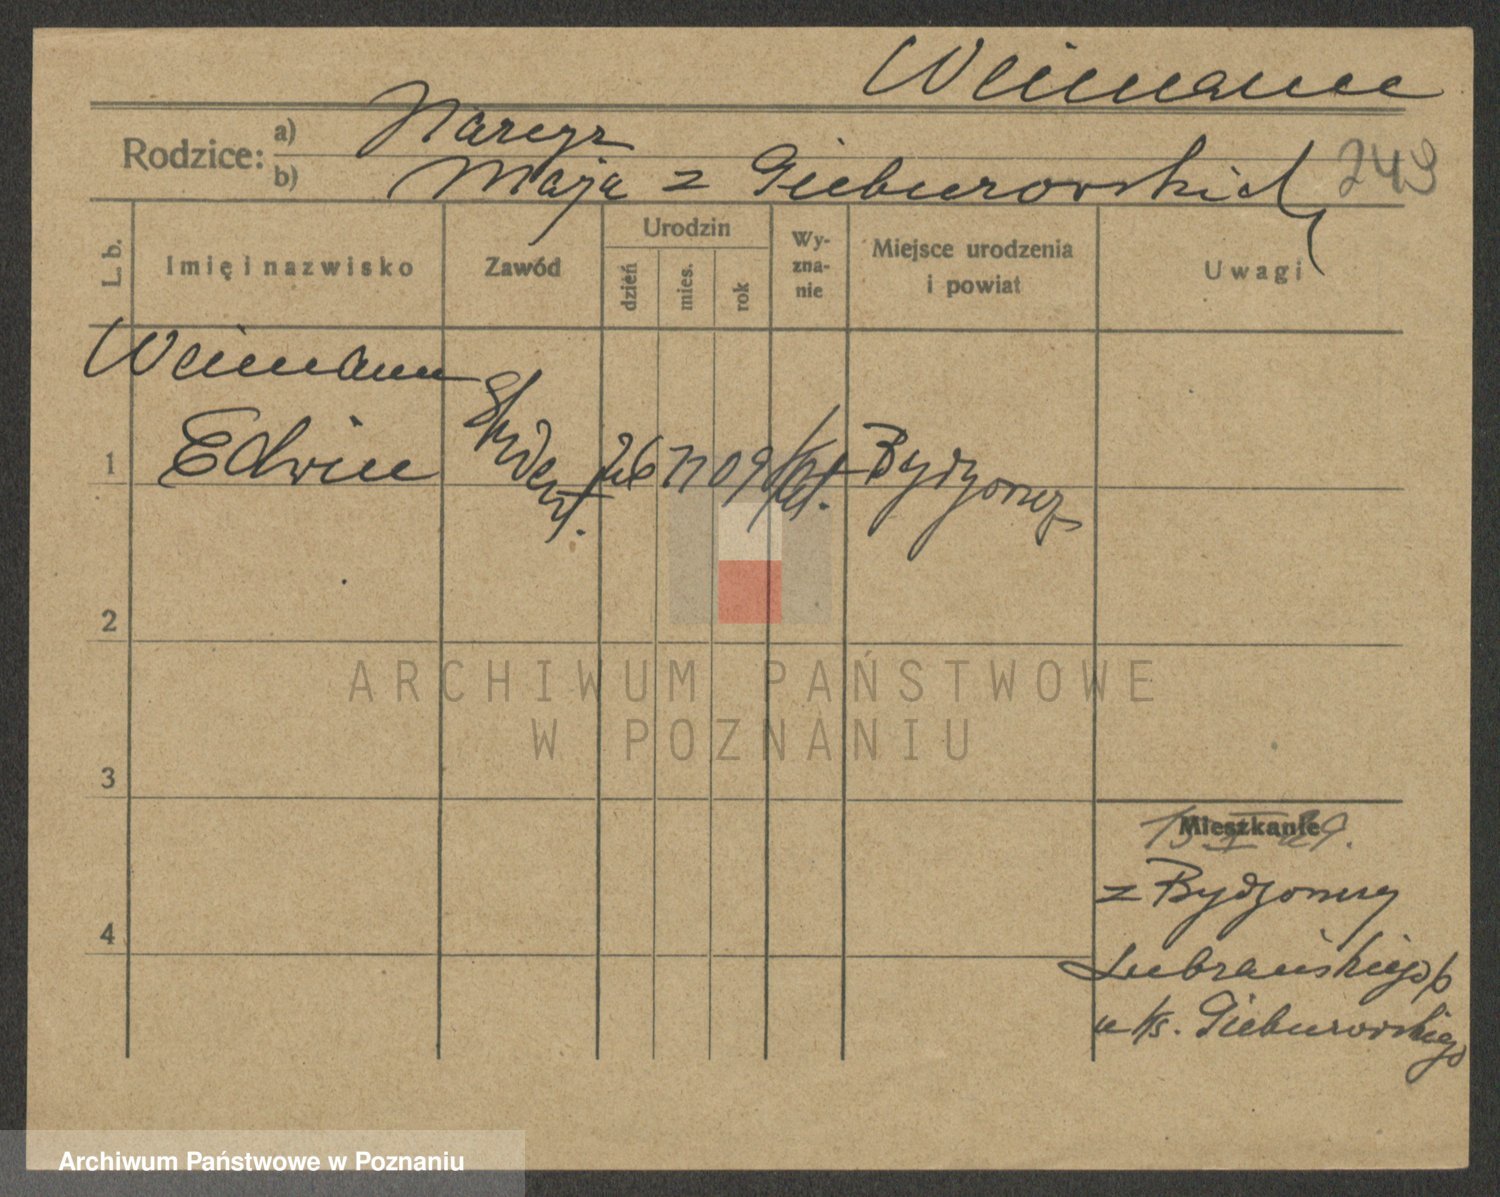 Weimann
Rodzice: a) Narcyz
b) Maja z Gieburowskich
249
L. b.
Imię i nazwisko
Zawód
Urodzin
dzień
mies.
rok
Wy-
zna-
nie
Miejsce urodzenia
i powiat
Uwagi
Weimann
1 Edwin Student. 26 11 09 kat. Bydgoszcz
2
3
4
Mieszkanie
z Bydgoszczy
Lubrańskiego
u ks. Gieburowskiego
ARCHIWUM PAŃSTWOWE
W POZNANIU
Archiwum Państwowe w Poznaniu